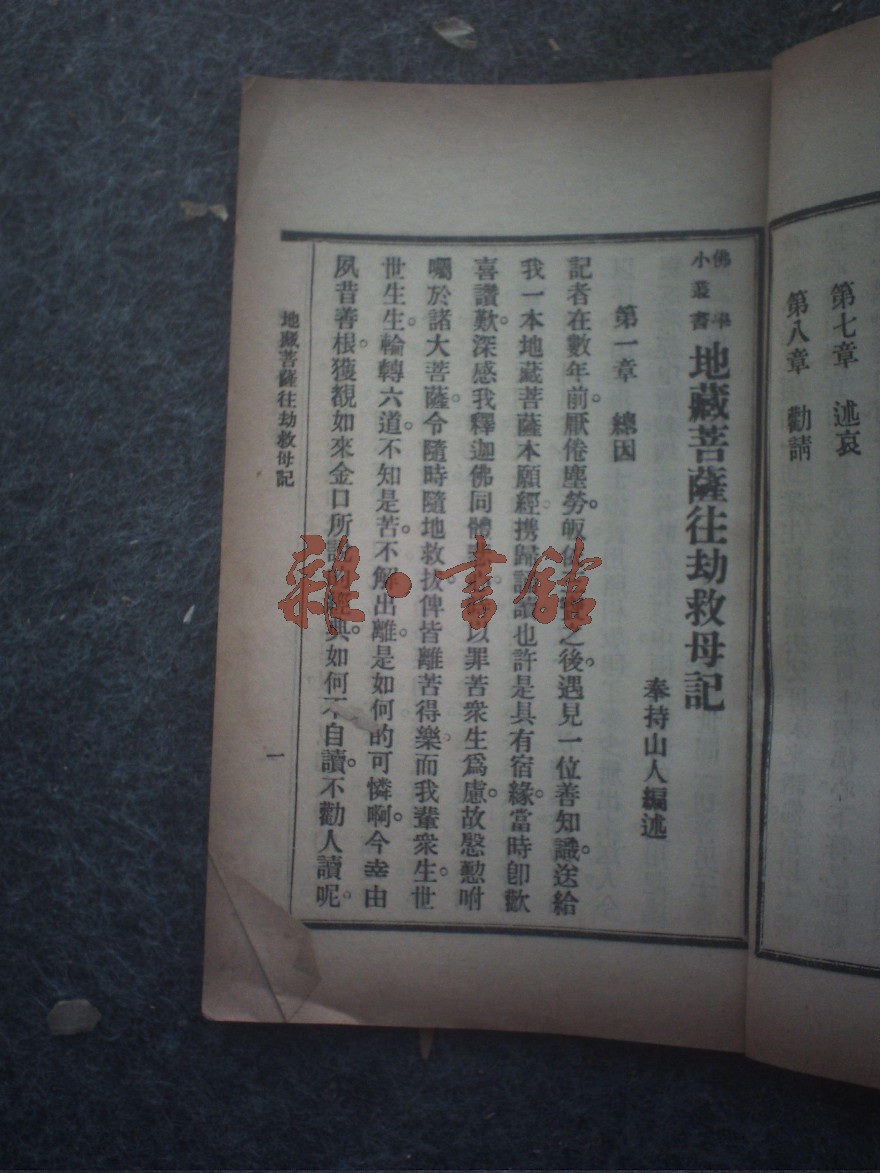 第七章 述哀
第八章 勸請
佛學小叢書
地藏菩薩往劫救母記
奉持山人編述
第一章 總因
記者在數年前。厭倦塵勞。皈依三寶之後。遇見一位善知識。送給
我一本地藏菩薩本願經。携歸讀誦。也許是具有宿緣。當時卽歡
喜讚歎。深感我釋迦佛同體以罪苦衆生爲慮。故慇懃咐
囑於諸大菩薩。令隨時隨地救拔。俾皆離苦得樂。而我輩衆生。世
世生生。輪轉六道。不知是苦。不解出離。是如何的可憐啊。今幸由
夙昔善根。獲覩如來金口所說的經典。如何不自讀。不勸人讀呢。
地藏菩薩往劫救母記
一
雜·書館